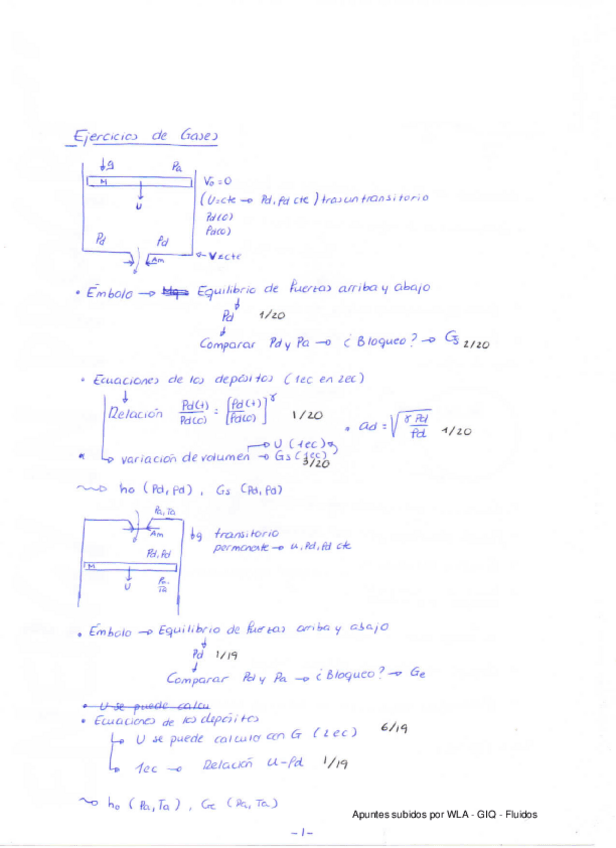 Ejercicios de Gases
↓g Pa
M V₀=0
U (U=cte → Pd, ρd cte) tras un transitorio
Pd(0)
ρd(0)
Pd ρd
Am ← V≠cte
• Émbolo → Equilibrio de fuerzas arriba y abajo
Pd 1/20
Comparar Pd y Pa → ¿Bloqueo? → Gs 2/20
• Ecuaciones de los depósitos (1ec en 2ec)
Relación Pd(t)/Pd(0) = [ρd(t)/ρd(0)]^γ 1/20 • ad = √(γ Pd/ρd) 1/20
→ U (1ec)
• variación de volumen → Gs (1ec) 3/20
~~> ho (Pd, ρd), Gs (Pd, ρd)
Pa, Ta
Am ↓g transitorio
Pd, ρd permanente → u, Pd, ρd cte
M
U Pa, Ta
• Émbolo → Equilibrio de fuerzas arriba y abajo
Pd 1/19
Comparar Pd y Pa → ¿Bloqueo? → Ge
• U se puede calcu
• Ecuaciones de los depósitos
U se puede calculo con G (2ec) 6/19
1ec → Relación u-Pd 1/19
~~> ho (Pa, Ta), Ge (Pa, Ta)
Apuntes subidos por WLA - GIQ - Fluidos
-1-